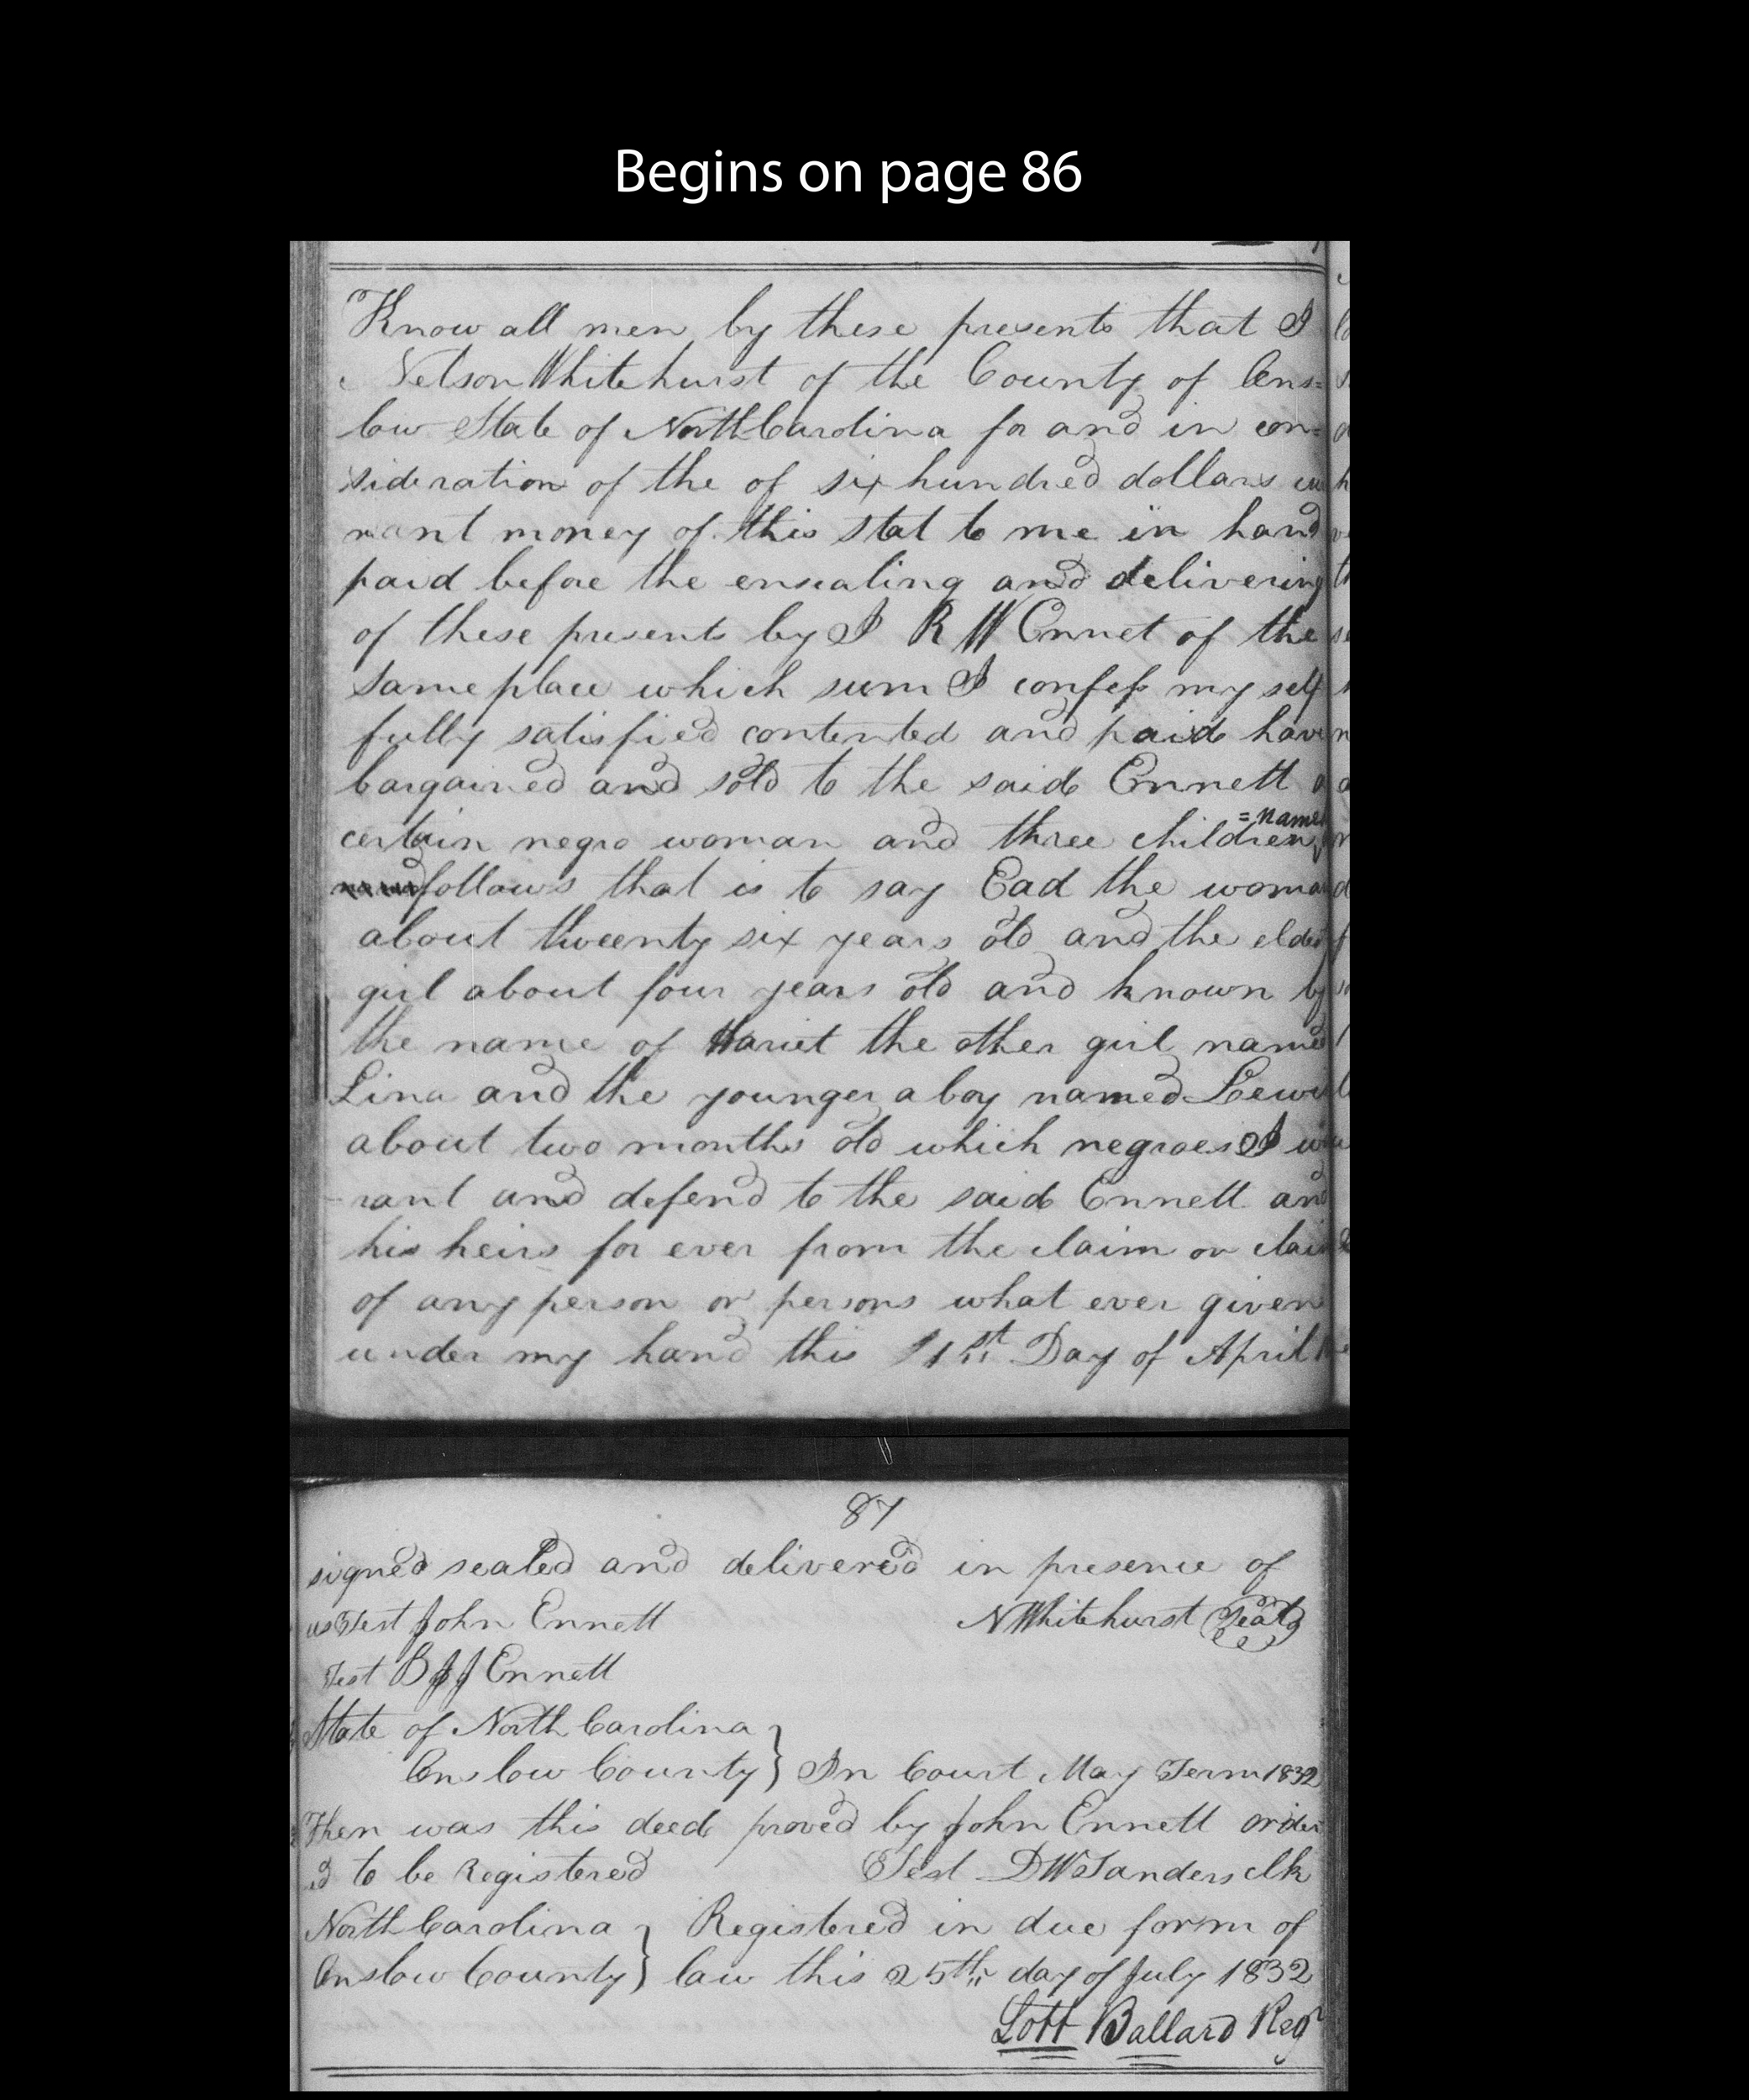 Begins on page 86
Know all men by these presents that I
Nelson Whitehurst of the County of Ons=
low State of North Carolina for and in con=
sideration of the of six hundred dollars cur
rant money of this stat to me in hand
paid before the ensealing and delivering
of these presents by I R W Ennet of the
same place which sum I confess my self
fully satisfied contented and paid have
bargained and sold to the said Ennett a
certain negro woman and three children
=named
follows that is to say Ead the woman
about tweenty six years old and the elder
girl about four years old and known by
the name of Hariet the other girl named
Lina and the younger a boy named Lewis
about two months old which negroes I wa
rant and defend to the said Ennett and
his heirs for ever from the claim or claim
of any person or persons what ever given
under my hand this 1st Day of April
87
signed sealed and delivered in presence of
us Test John Ennett N Whitehurst Seal
Test B J J Ennett
State of North Carolina
Onslow County } In Court May Term 1832
Then was this deed proved by John Ennett order
ed to be Registered Test D W Sanders clk
North Carolina } Registered in due form of
Onslow County } law this 25th day of July 1832
Lott Ballard Regr